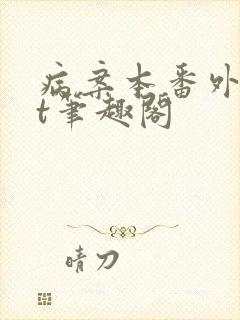 病案本番外
t笔趣阁
晴刀